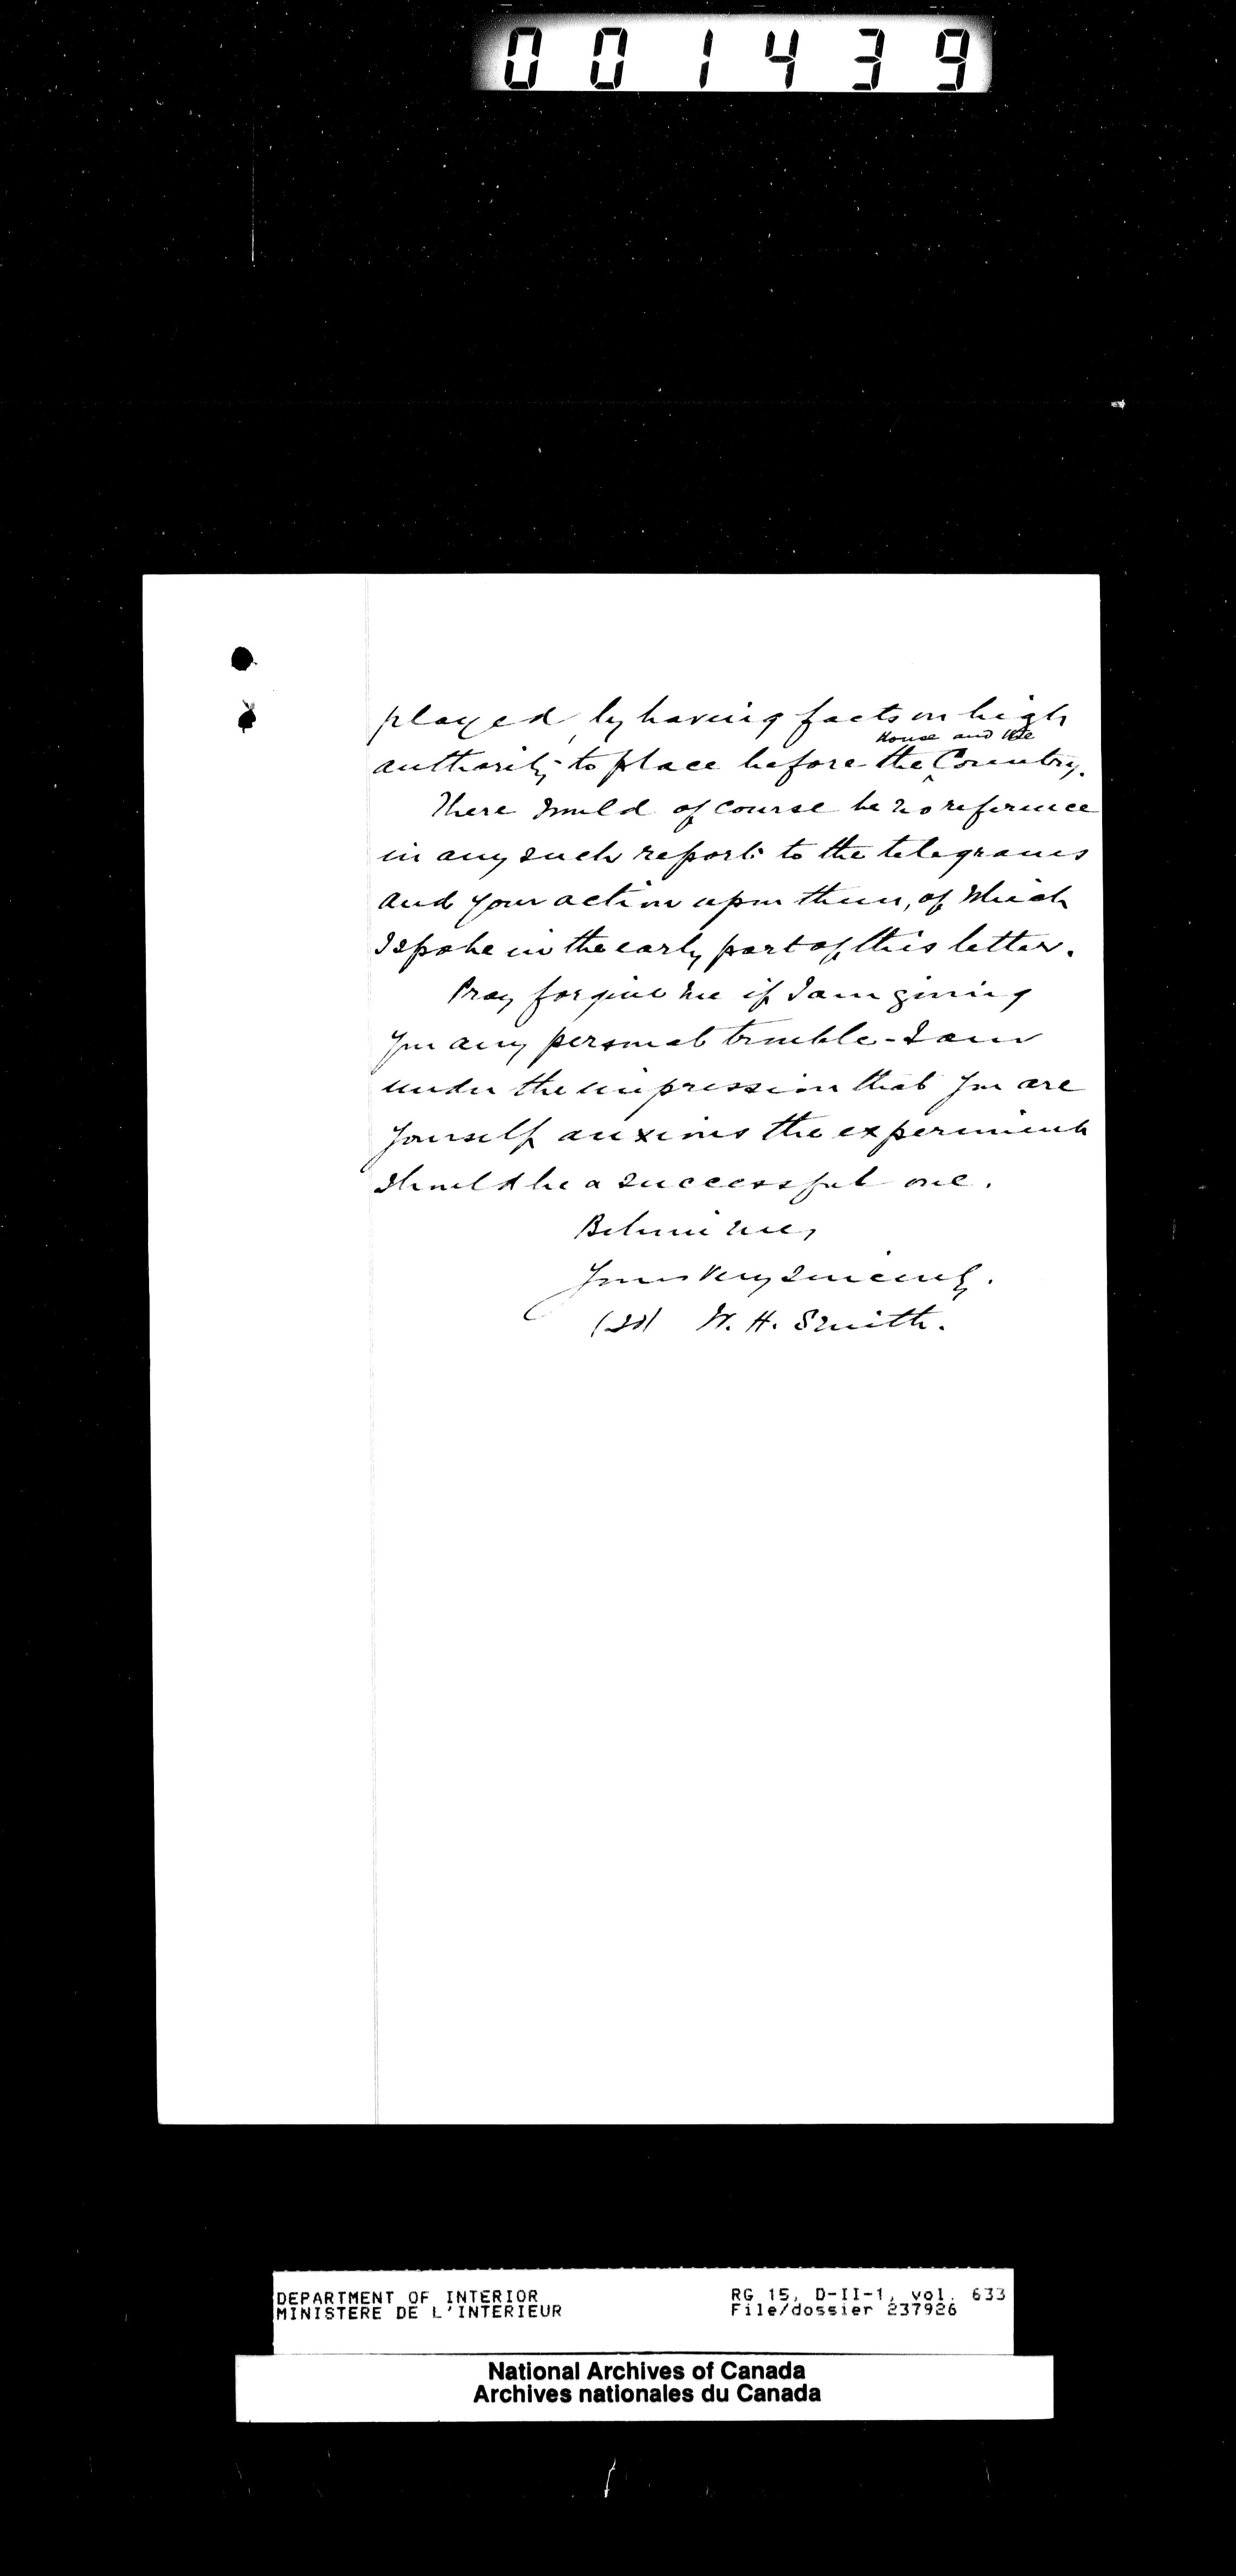 001439
played, by having facts on high
House and the
authority to place before the ^ Country.
There would of course be no reference
in any such report to the telegrams
and your action upon them, of which
I spoke in the early part of this letter.
Pray forgive me if I am giving
you any personal trouble - I am
under the impression that you are
yourself anxious the experiment
should be a successful one.
Believe me,
Yours very sincerely.
(sd) W. H. Smith.
DEPARTMENT OF INTERIOR
MINISTERE DE L'INTERIEUR
RG 15, D-II-1, vol. 633
File/dossier 237926
National Archives of Canada
Archives nationales du Canada